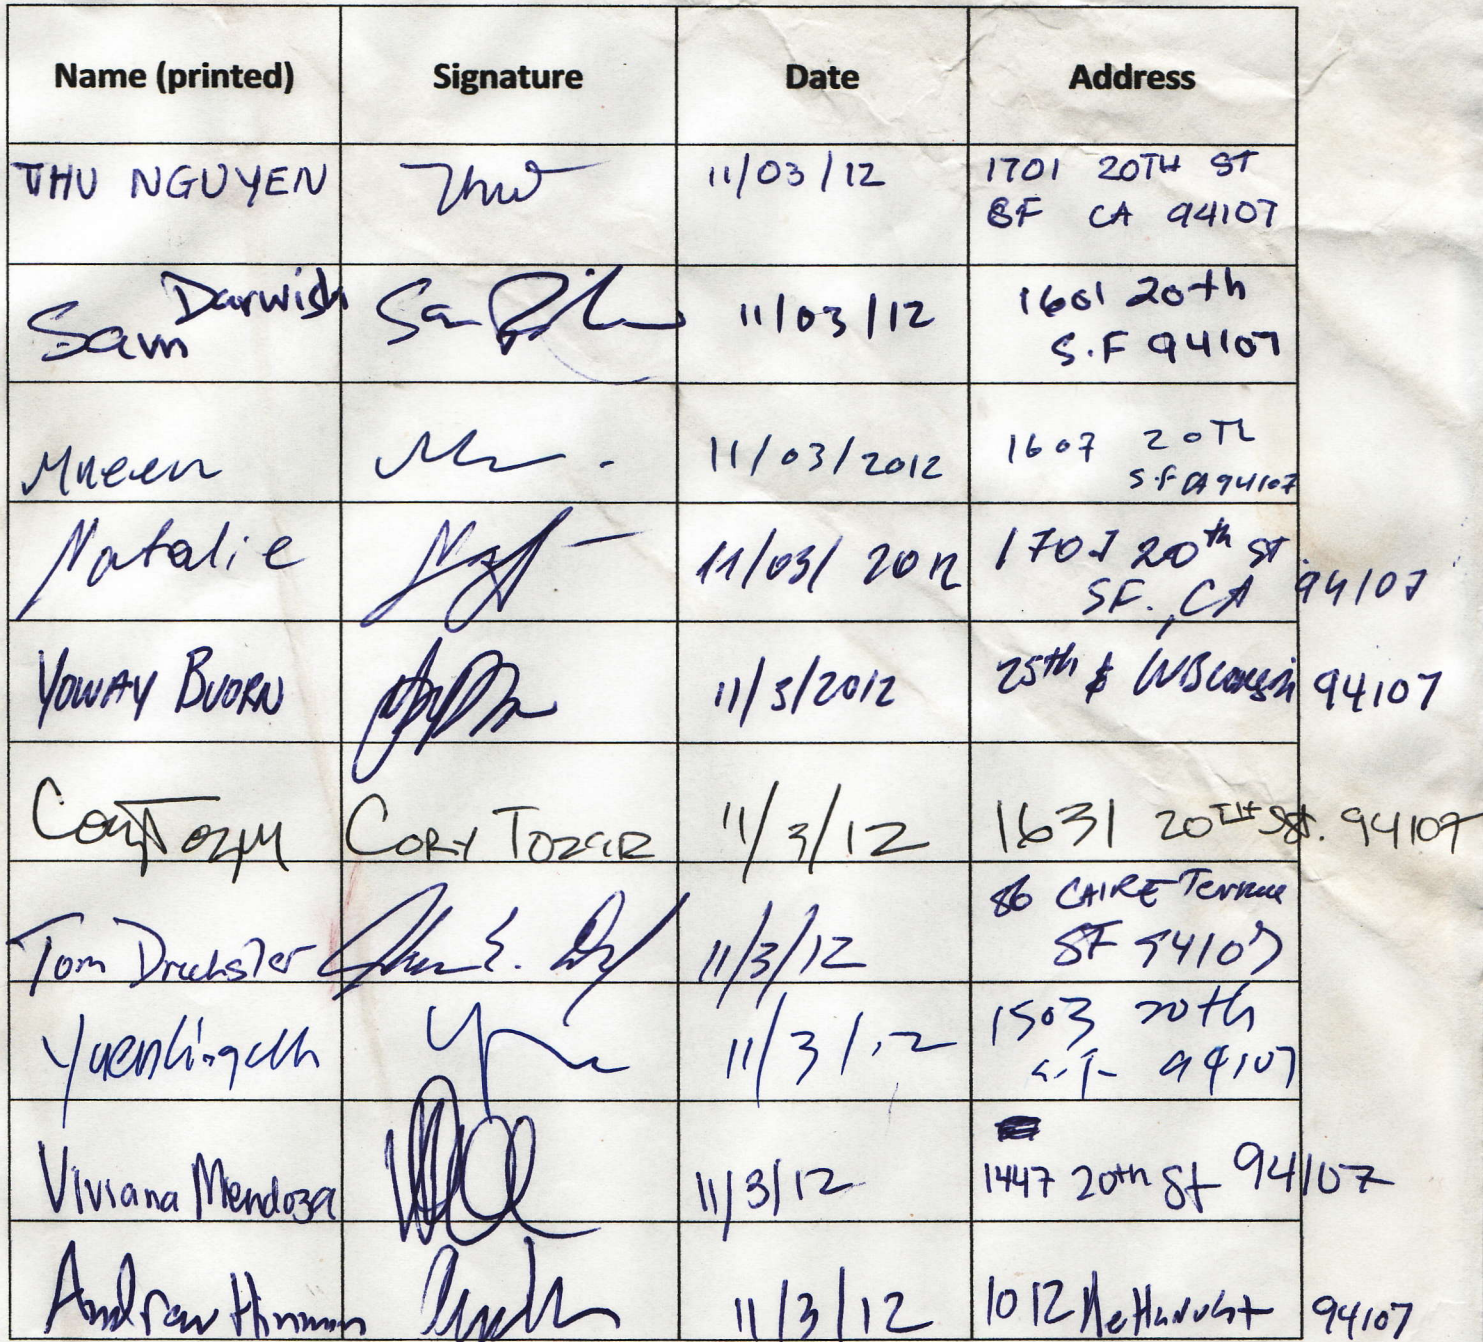 Name (printed) Signature Date Address
THU NGUYEN Thu 11/03/12 1701 20TH ST
SF CA 94107
Sam Darwish Sam 11/03/12 1601 20th
S.F 94107
11/03/2012 1607 20Th
S.F CA 94107
Natalie 11/03/2012 1707 20th St.
SF., CA 94107
YOWAY BUORN 11/3/2012 25th & Wisconsin 94107
Cory Tozer CORY TOZER 11/3/12 1631 20TH St. 94107
Tom Drechsler 11/3/12 86 CAIRE Terrace
SF 94107
11/3/12 1503 20th
S.F. 94107
Viviana Mendoza 11/3/12 1447 20th St 94107
Andrew Hinman 11/3/12 1012 94107